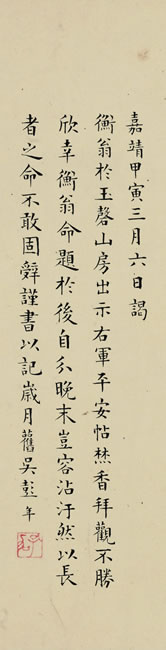 嘉靖甲寅三月六日謁
衡翁於玉磬山房出示右軍平安帖焚香拜觀不勝
欣幸衡翁命題於後自分晚末豈容沾汙然以長
者之命不敢固辭謹書以記歲月舊吳彭年